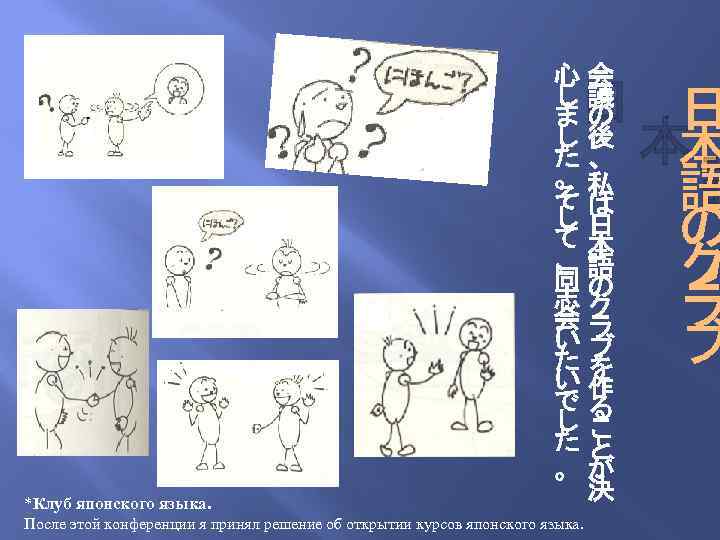 日本語のクラブ
会議の後、私は日本語のクラブを作ることが決
心しました。そして、同志会いたいでした。
?
?
?
?
にほんご?
にほんご?
?
*Клуб японского языка.
После этой конференции я принял решение об открытии курсов японского языка.